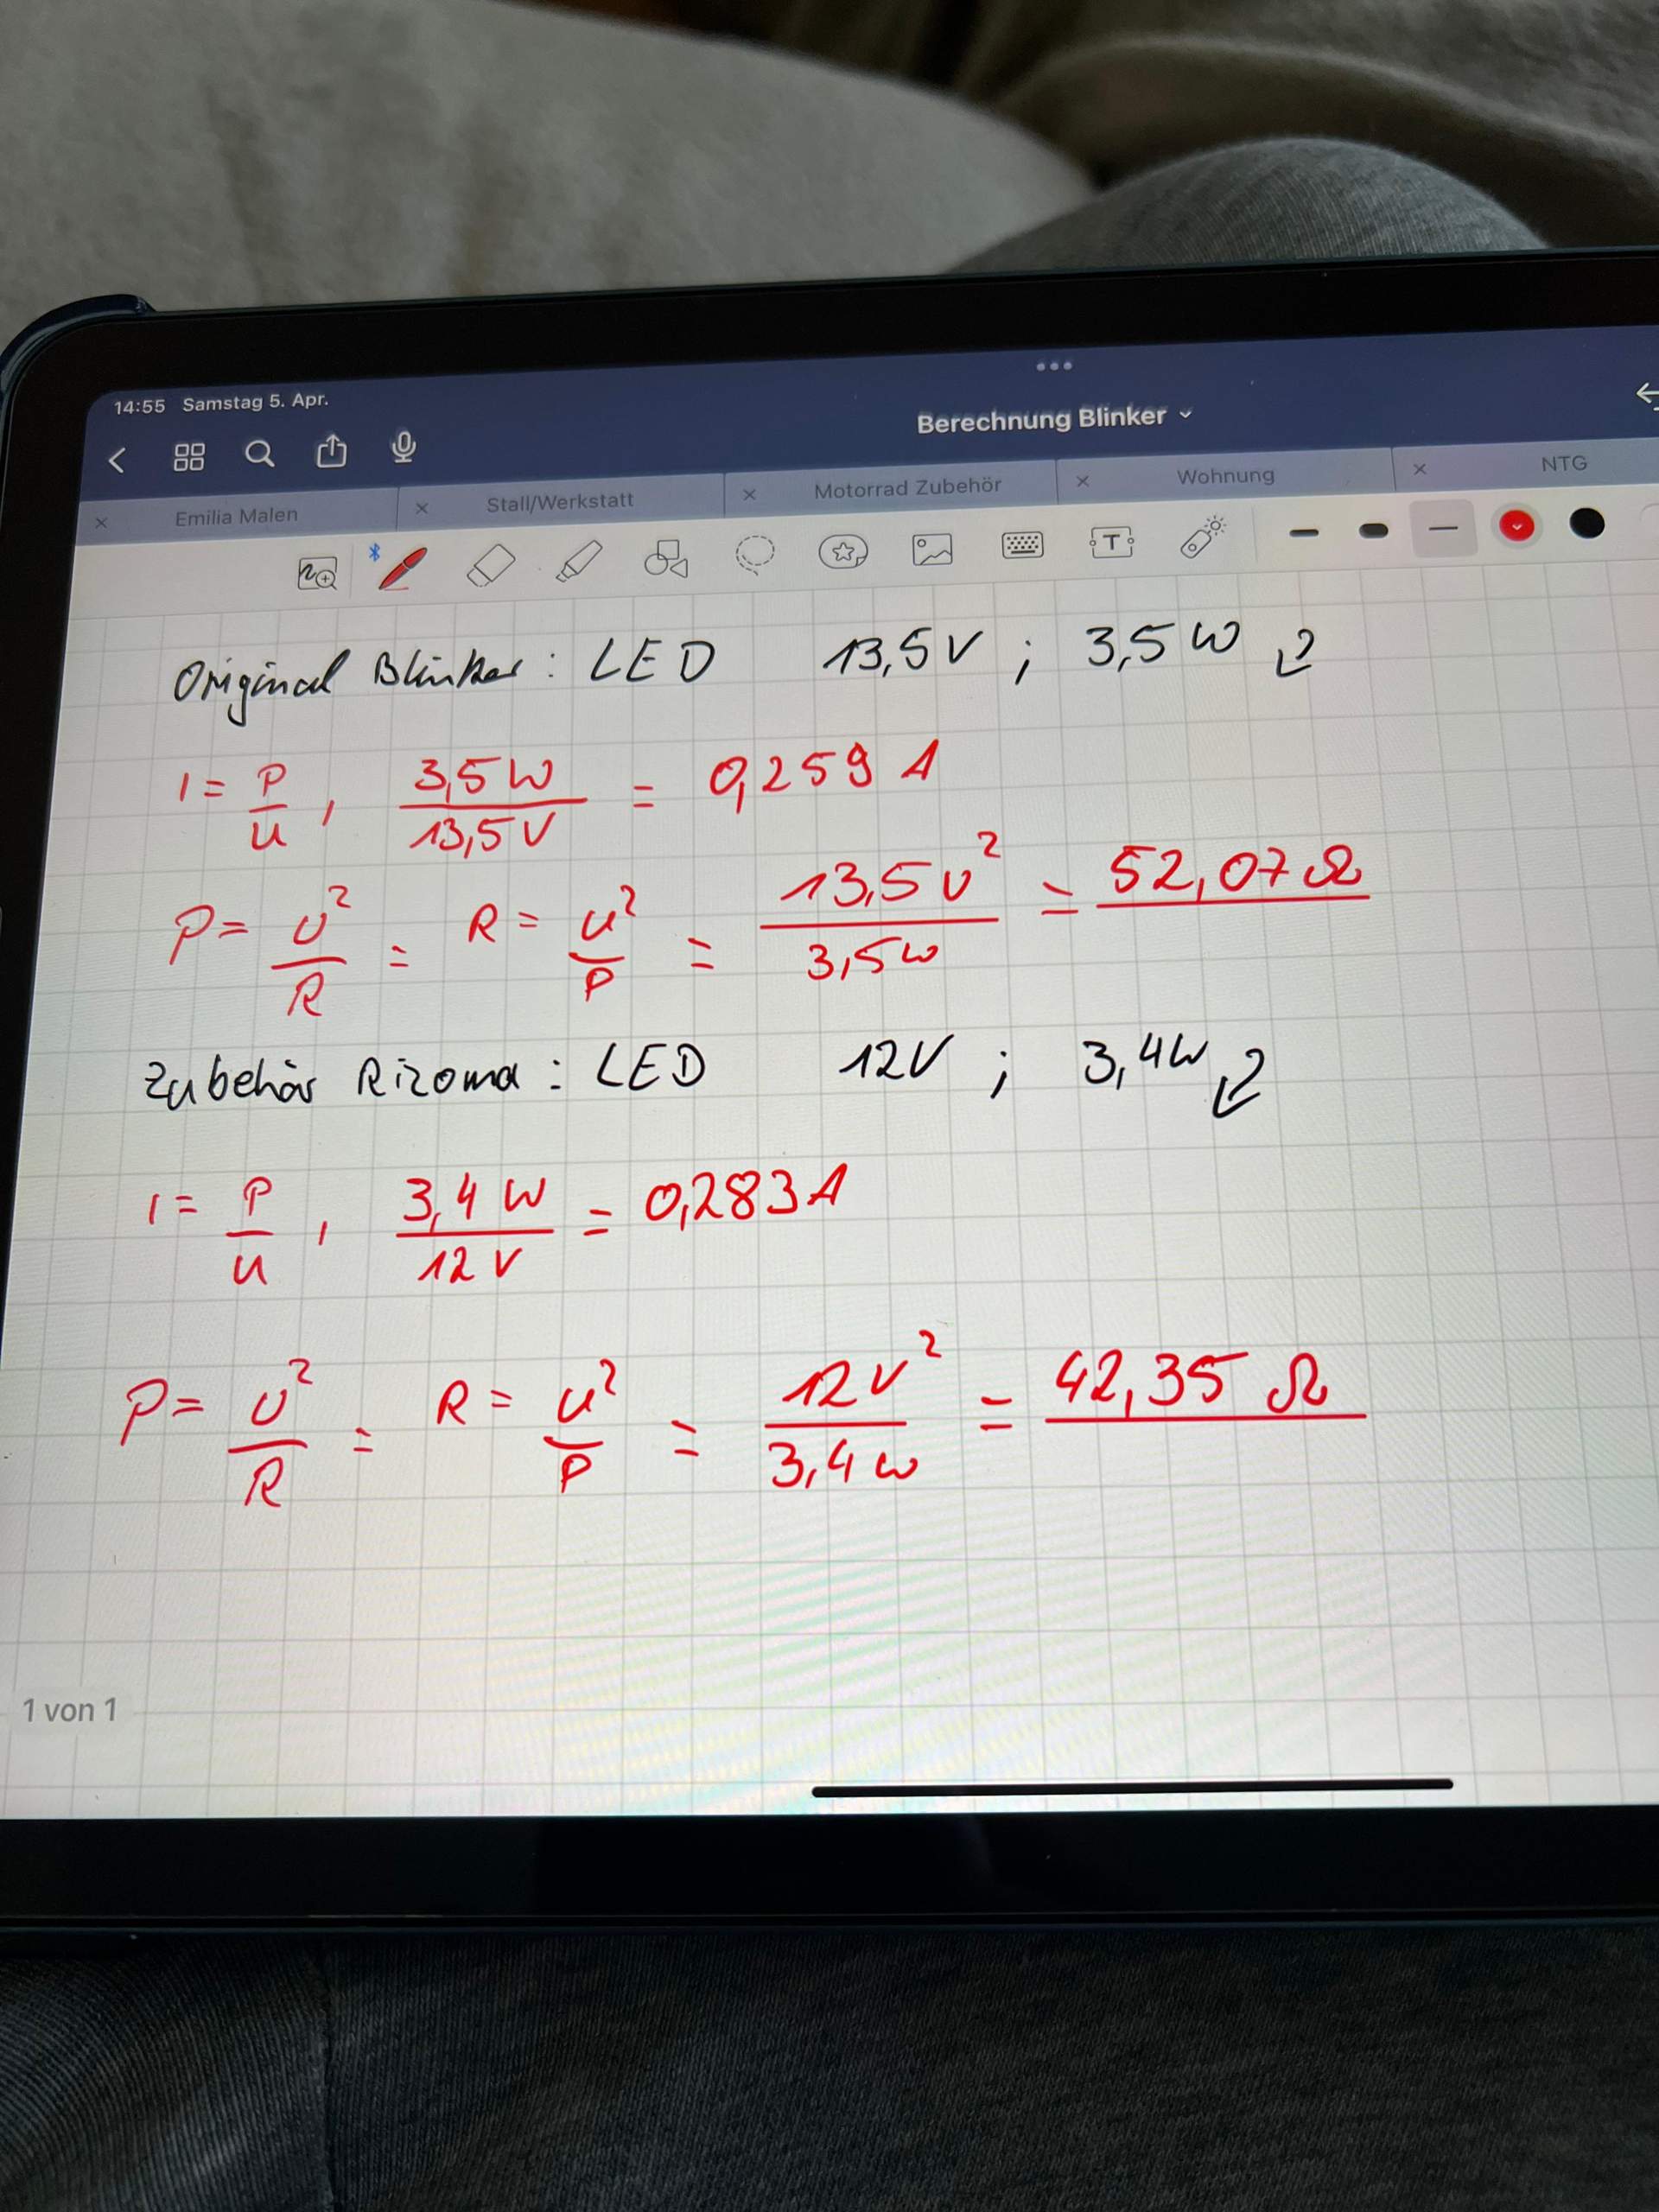 14:55 Samstag 5. Apr.
Berechnung Blinker
Emilia Malen
Stall/Werkstatt
Motorrad Zubehör
Wohnung
NTG
Original Blinker: LED 13,5V ; 3,5W
I = P/U , 3,5W/13,5V = 0,259 A
P = U²/R = R = U²/P = 13,5V²/3,5W = 52,07Ω
Zubehör Rizoma: LED 12V ; 3,4W
I = P/U , 3,4W/12V = 0,283A
P = U²/R = R = U²/P = 12V²/3,4W = 42,35 Ω
1 von 1